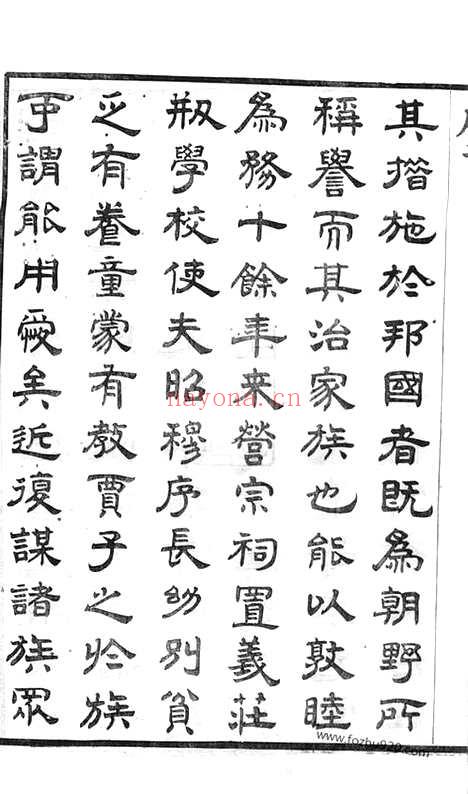 其措施於邦國者既為朝野所
稱譽而其治家族也能以敦睦
為務十餘年来營宗祠置義莊
剏學校使夫昭穆序長幼別貧
乏有養童蒙有教賈子之於族
可謂能用愛矣近復謀諸族眾
nayona.cn
www.fozhu920.com